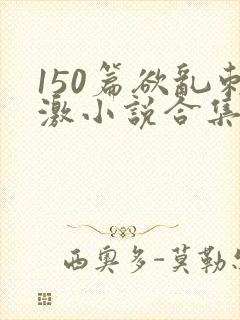 150篇欲乱刺
激小说合集
西奥多-莫勒